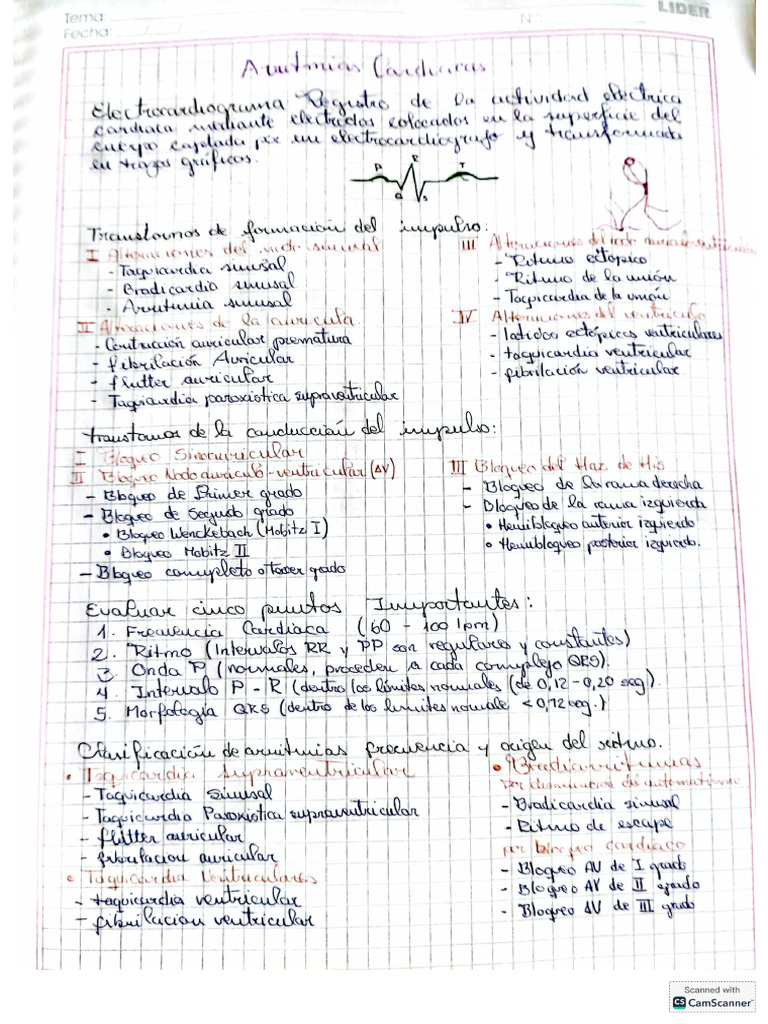 Tema:
Fecha:
N°:
LIDER
Arritmias Cardiacas
Electrocardiograma Registro de la actividad eléctrica
cardiaca mediante electrodos colocados en la superficie del
cuerpo captada por un electrocardiografo y transformado
en trazos gráficos.
P R T
Q S
Transtornos de formación del impulso:
I Alteraciones del nodo sinusal
- Taquicardia sinusal
- Bradicardia sinusal
- Arritmia sinusal
II Alteraciones de la auricula
- Contracción auricular prematura
- fibrilación Auricular
- flutter auricular
- Taquicardia paroxistica supraventricular
III Alteraciones del nodo auriculoventricular
- Ritmo ectópico
- Ritmo de la unión
- Taquicardia de la unión
IV Alteraciones del ventrículo
- latidos ectópicos ventriculares
- taquicardia ventricular
- fibrilación ventricular
transtornos de la conducción del impulso:
I Bloqueo Sinoauricular
II Bloqueo Nodo auriculo-ventricular (AV)
- Bloqueo de Primer grado
- Bloqueo de Segundo grado
• Bloqueo Wenckebach (Mobitz I)
• Bloqueo Mobitz II
- Bloqueo completo o tercer grado
III Bloqueo del Haz de His
- Bloqueo de la rama derecha
- Bloqueo de la rama izquierda
• Hemibloqueo anterior izquierdo
• Hemibloqueo posterior izquierdo.
Evaluar cinco puntos Importantes:
1. Frecuencia Cardiaca (60 - 100 lpm)
2. Ritmo (Intervalos RR y PP son regulares y constantes)
3. Onda P (normales, preceden a cada complejo QRS).
4. Intervalo P-R (dentro los límites normales (de 0,12 - 0,20 seg).
5. Morfología QRS (dentro de los limites normale < 0,12 seg.)
Clasificación de arritmias frecuencia y origen del ritmo.
• Taquicardia supraventricular
- Taquicardia Sinusal
- Taquicardia Paroxistica supraventricular
- flutter auricular
- fibrilacion auricular
• Taquicardia Ventriculares
- taquicardia ventricular
- fibrilacion ventricular
• Bradiarritmias
por disminucion del automatismo
- Bradicardia sinusal
- Ritmo de escape
por bloqueo cardiaco
- Bloqueo AV de I grado
- Bloqueo AV de II grado
- Bloqueo AV de III grado
Scanned with
CS CamScanner